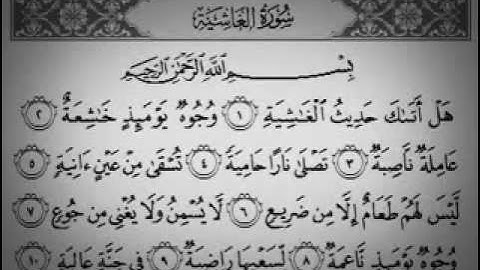 سُورَةُ الغَاشِيَةِ
بِسْمِ اللَّهِ الرَّحْمَٰنِ الرَّحِيمِ
هَلْ أَتَىٰكَ حَدِيثُ الْغَٰشِيَةِ ١ وُجُوهٌ يَوْمَئِذٍ خَٰشِعَةٌ ٢
عَامِلَةٌ نَّاصِبَةٌ ٣ تَصْلَىٰ نَارًا حَامِيَةً ٤ تُسْقَىٰ مِنْ عَيْنٍ ءَانِيَةٍ ٥
لَّيْسَ لَهُمْ طَعَامٌ إِلَّا مِن ضَرِيعٍ ٦ لَّا يُسْمِنُ وَلَا يُغْنِي مِن جُوعٍ ٧
وُجُوهٌ يَوْمَئِذٍ نَّاعِمَةٌ ٨ لِّسَعْيِهَا رَاضِيَةٌ ٩ فِي جَنَّةٍ عَالِيَةٍ ١٠